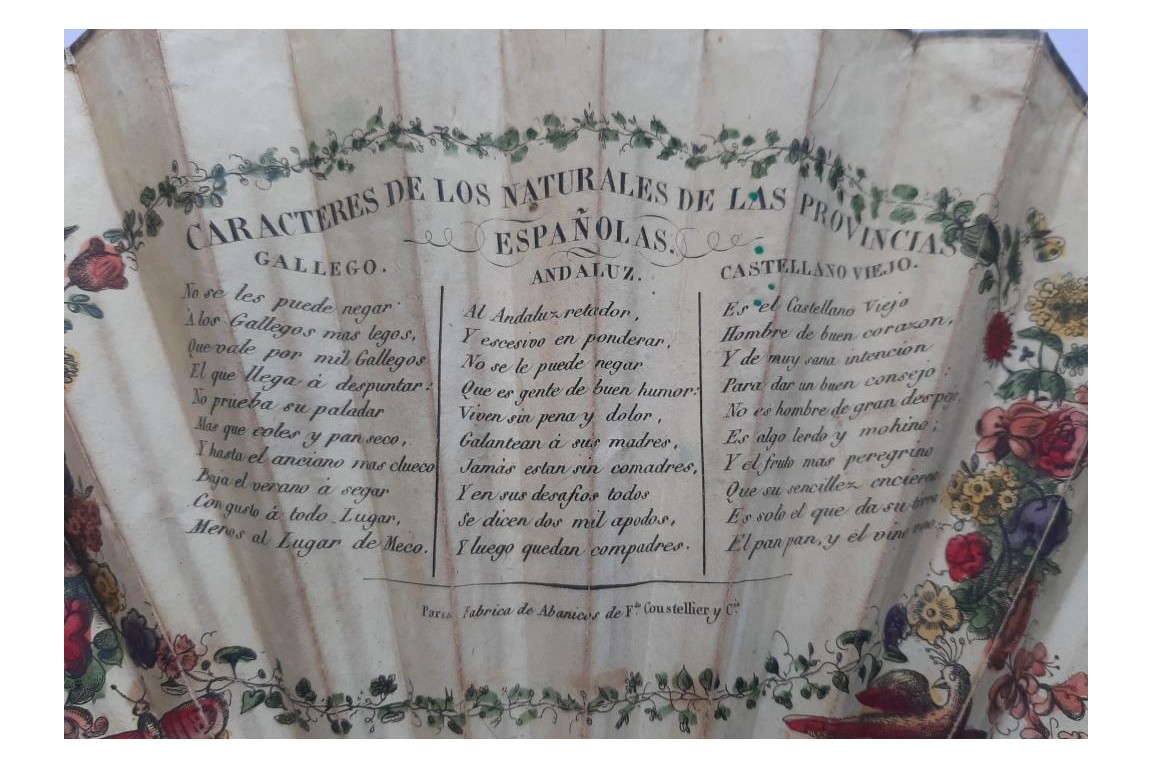 CARACTERES DE LOS NATURALES DE LAS PROVINCIAS
ESPAÑOLAS.
GALLEGO.
No se les puede negar
Á los Gallegos mas legos,
Que vale por mil Gallegos
El que llega á despuntar:
No prueba su paladar
Mas que coles y pan seco,
Y hasta el anciano mas clueco
Baja el verano á segar
Con gusto á todo Lugar,
Menos al Lugar de Meco.
ANDALUZ.
Al Andaluz retador,
Y escesivo en ponderar,
No se le puede negar
Que es gente de buen humor:
Viven sin pena y dolor,
Galantean á sus madres,
Jamás estan sin comadres,
Y en sus desafios todos
Se dicen dos mil apodos,
Y luego quedan compadres.
CASTELLANO VIEJO.
Es el Castellano Viejo
Hombre de buen corazon,
Y de muy sana intencion
Para dar un buen consejo:
No es hombre de gran
Es algo lerdo y mohino;
Y el fruto mas peregrino
Que su sencillez encierra
Es solo el que da su tierra
El pan pan, y el vino
Paris Fabrica de Abanicos de F.do Coustellier y C.ie